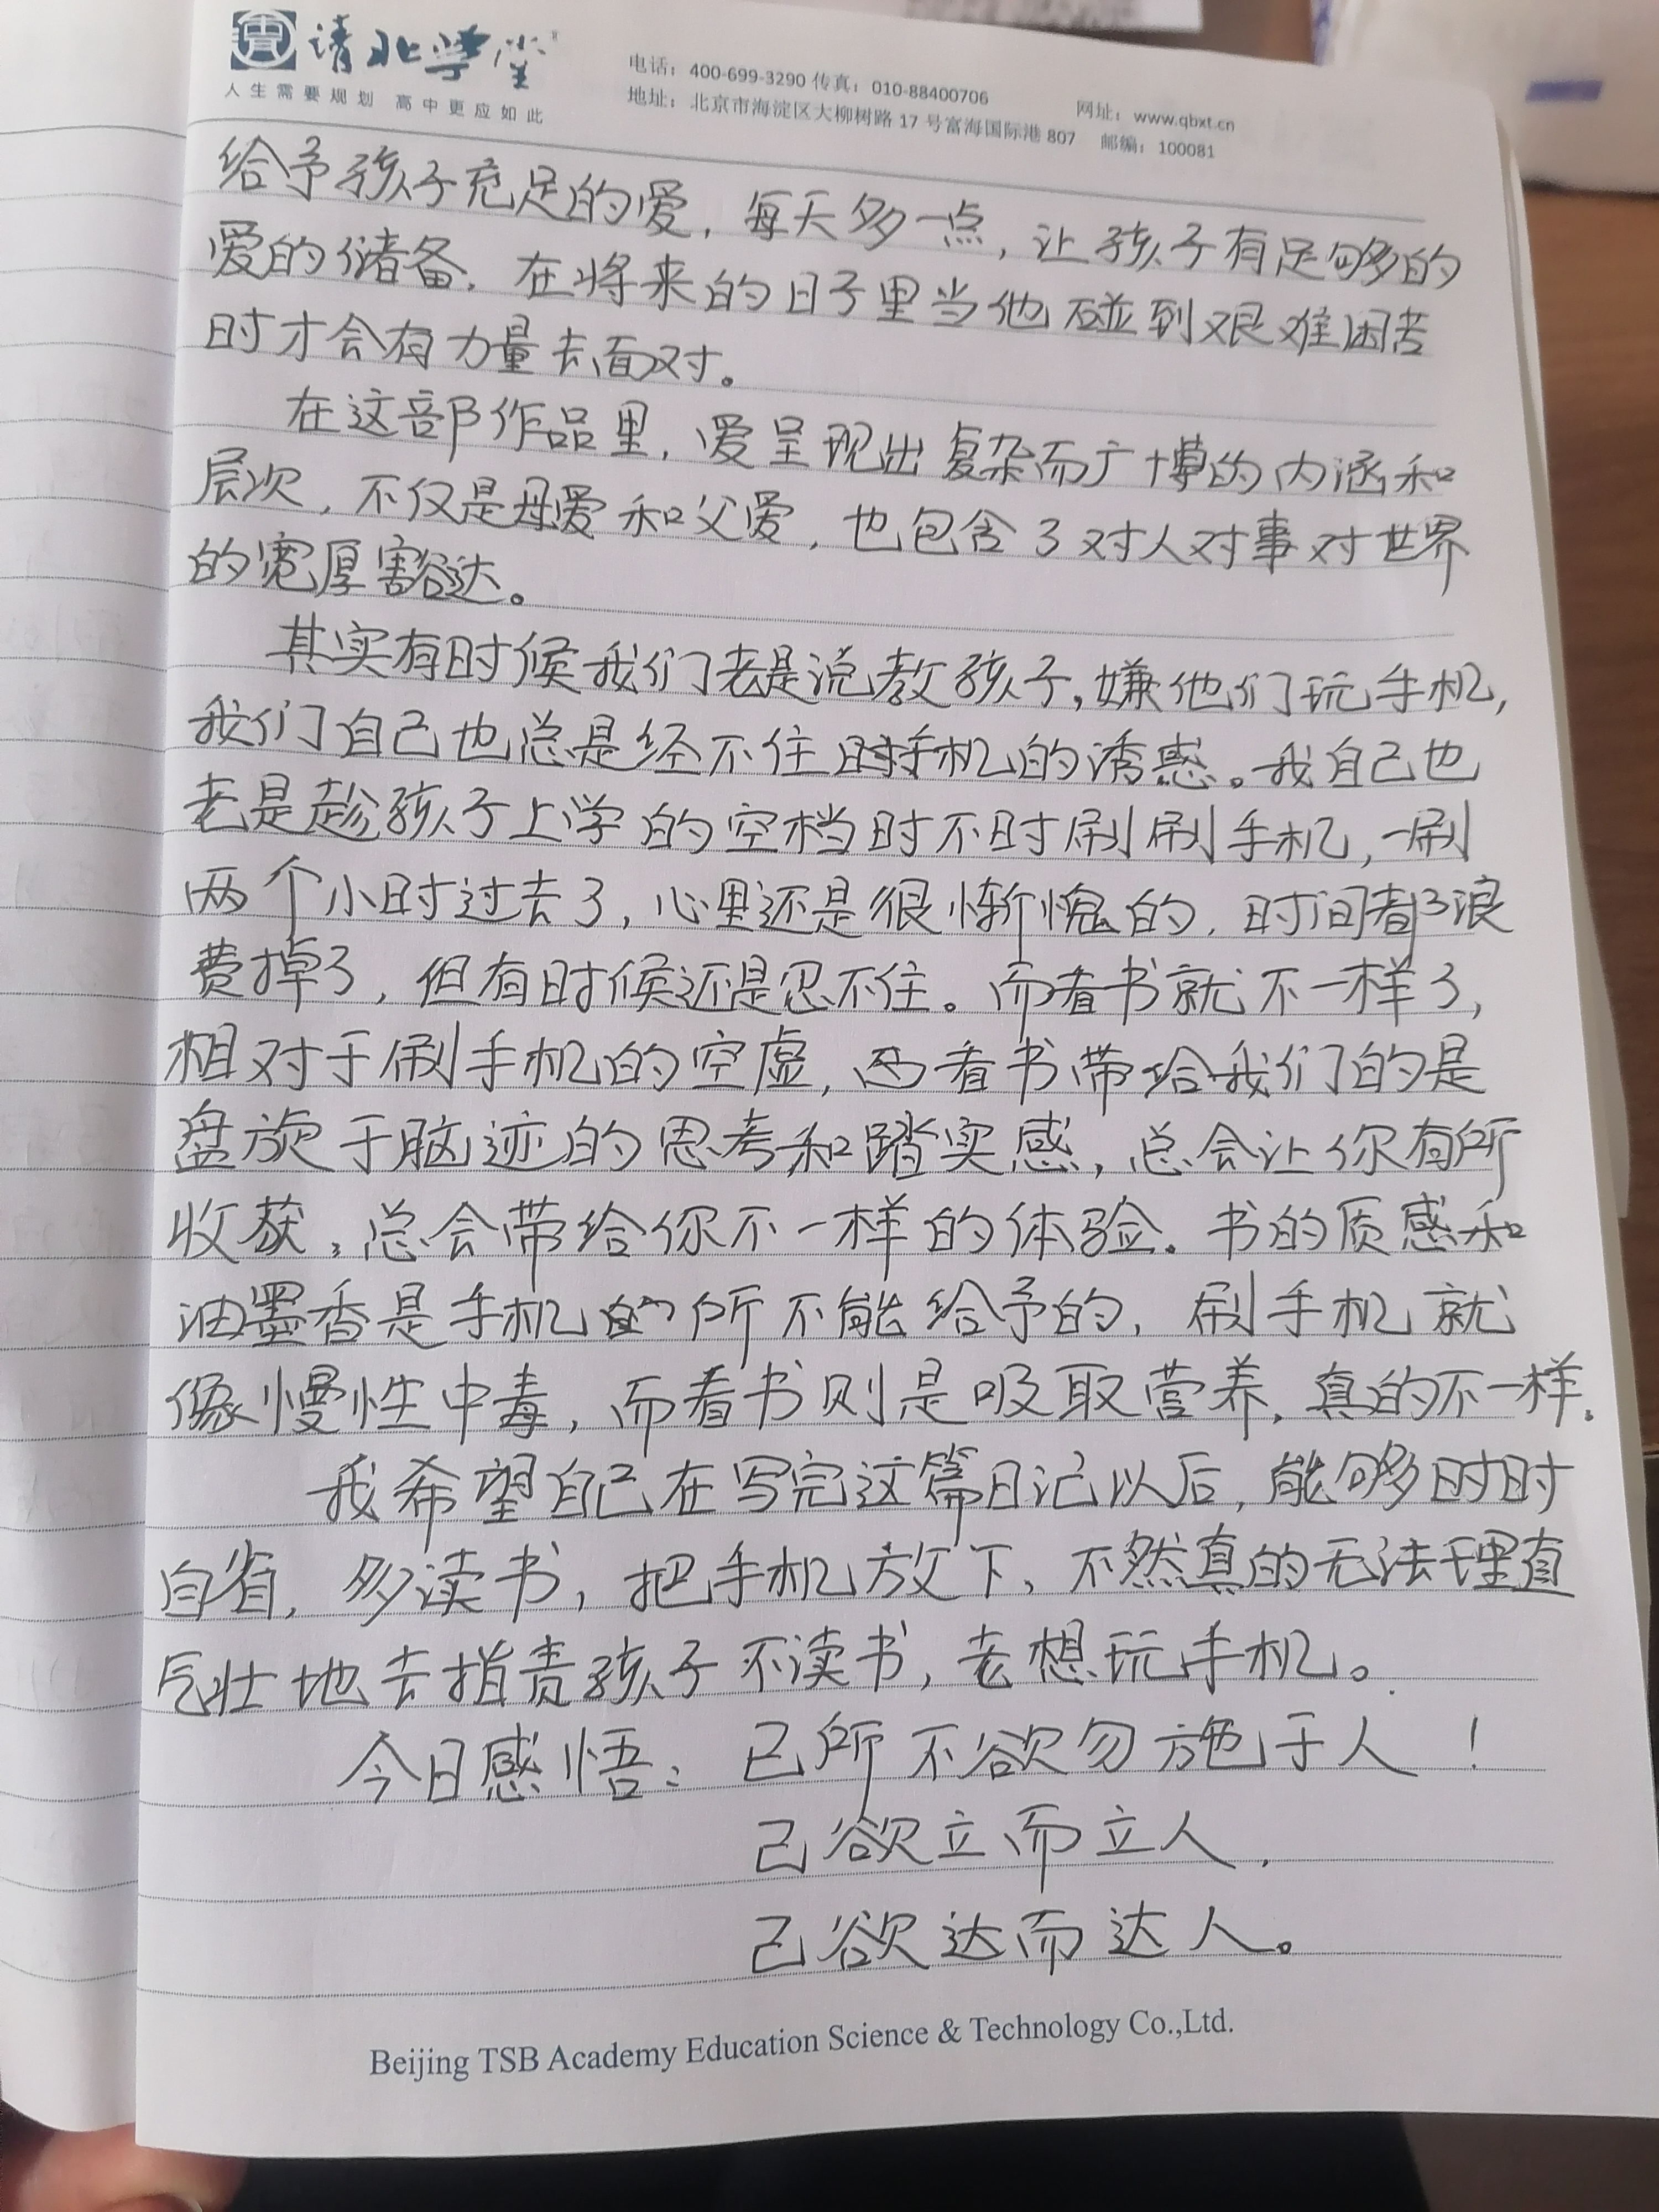 清北学堂
人生需要规划 高中更应如此
电话：400-699-3290 传真：010-88400706 网址：www.qbxt.cn
地址：北京市海淀区大柳树路 17 号富海国际港 807 邮编：100081
给予孩子充足的爱，每天多一点，让孩子有足够的
爱的储备，在将来的日子里当他碰到艰难困苦
时才会有力量去面对。
在这部作品里，爱呈现出复杂而广博的内涵和
层次，不仅是母爱和父爱，也包含了对人对事对世界
的宽厚豁达。
其实有时候我们老是说教孩子，嫌他们玩手机，
我们自己也总是经不住手机的诱惑。我自己也
老是趁孩子上学的空档时不时刷刷手机，一刷
两个小时过去了，心里还是很惭愧的，时间都浪
费掉了，但有时候还是忍不住。而看书就不一样了，
相对于刷手机的空虚，而看书带给我们的是
盘旋于脑迹的思考和踏实感，总会让你有所
收获，总会带给你不一样的体验。书的质感和
油墨香是手机所不能给予的，刷手机就
像慢性中毒，而看书则是吸取营养，真的不一样。
我希望自己在写完这篇日记以后，能够时时
自省，多读书，把手机放下，不然真的无法理直
气壮地去指责孩子不读书，老想玩手机。
今日感悟：己所不欲勿施于人！
己欲立而立人，
己欲达而达人。
Beijing TSB Academy Education Science & Technology Co.,Ltd.